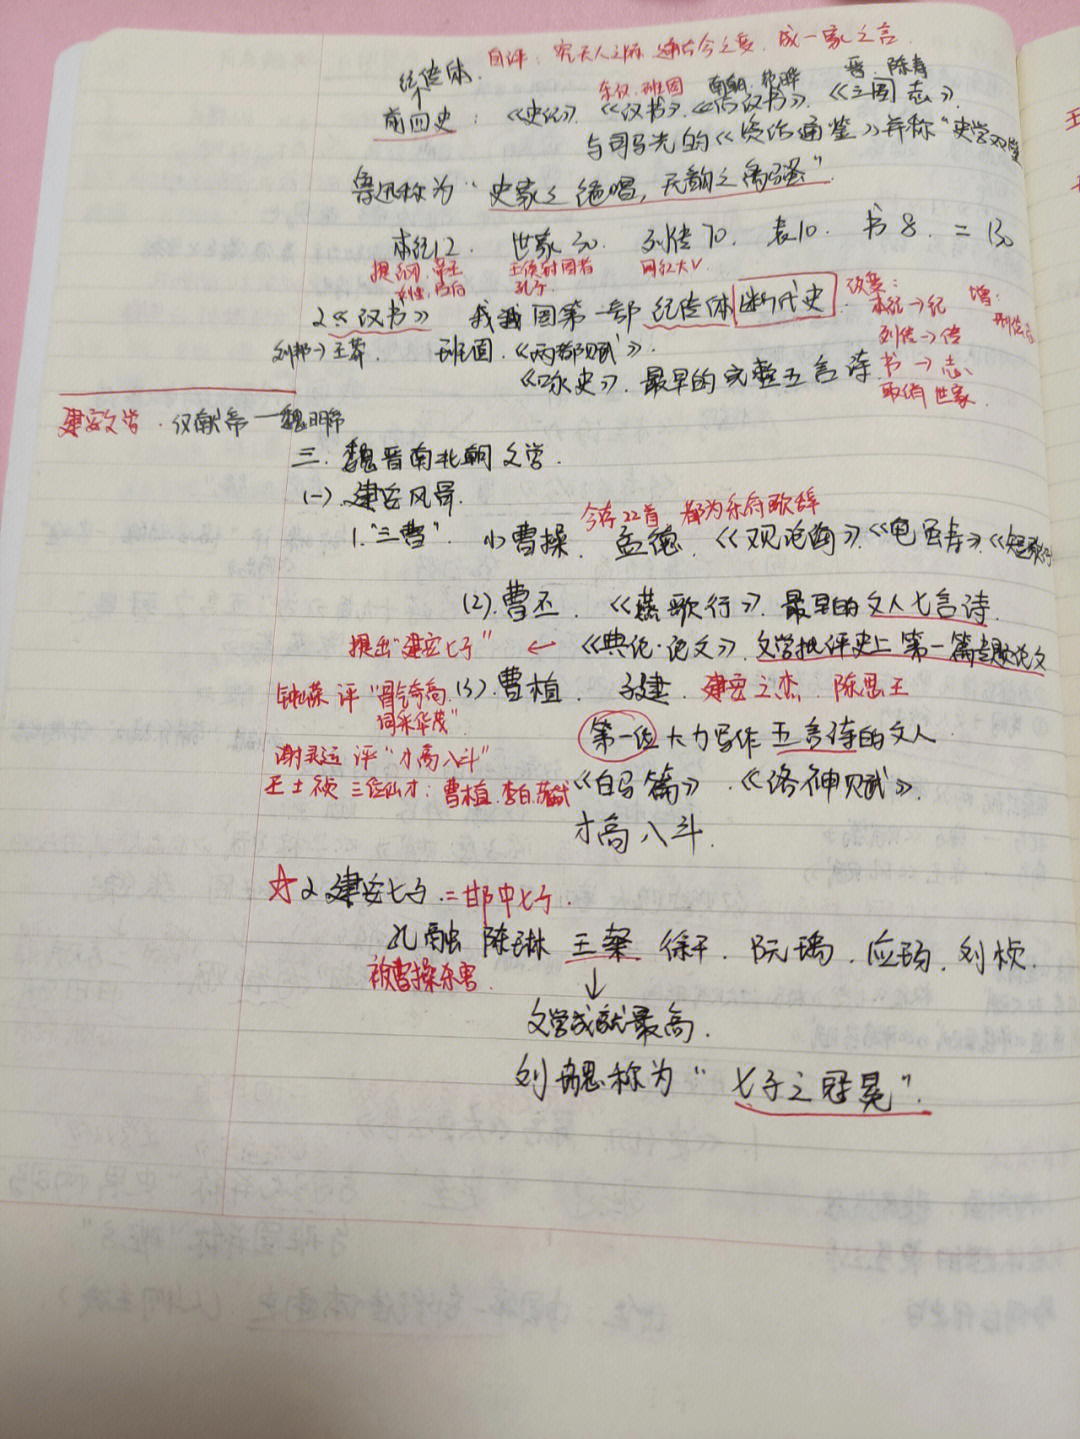 自评：究天人之际 通古今之变，成一家之言
纪传体
东汉·班固 南朝·范晔 晋·陈寿
前四史：《史记》《汉书》《后汉书》《三国志》
与司马光的《资治通鉴》并称"史学双璧
鲁迅称为"史家之绝唱，无韵之离骚"
本纪12． 世家30． 列传70． 表10． 书8．＝130
提纲，帝王 王侯封国者 网红大V
女性，吕后 孔子
2《汉书》 我国第一部纪传体断代史 改变：
本纪→纪 增：
列传→传 刑法志
刘邦→王莽 班固．《两都赋》． 书→志
《咏史》．最早的完整五言诗 取消世家．
建安文学．汉献帝—魏明帝
三．魏晋南北朝文学．
(一)．建安风骨．
今存22首 都为乐府歌辞
1."三曹"．(1)曹操． 孟德．《观沧海》《龟虽寿》《短歌行
(2)．曹丕．《燕歌行》．最早的文人七言诗．
提出"建安七子" ← 《典论·论文》．文学批评史上第一篇专题论文
钟嵘 评"骨气奇高，(3)．曹植． 子建． 建安之杰 陈思王
词采华茂"
第一位大力写作五言诗的文人
谢灵运 评"才高八斗"
王士祯 三位仙才：曹植．李白．苏轼《白马篇》．《洛神赋》．
才高八斗．
☆2 建安七子．＝邺中七子．
孔融 陈琳 王粲 徐干．阮瑀．应玚．刘桢．
被曹操杀害 ↓
文学成就最高．
刘勰称为"七子之冠冕"．